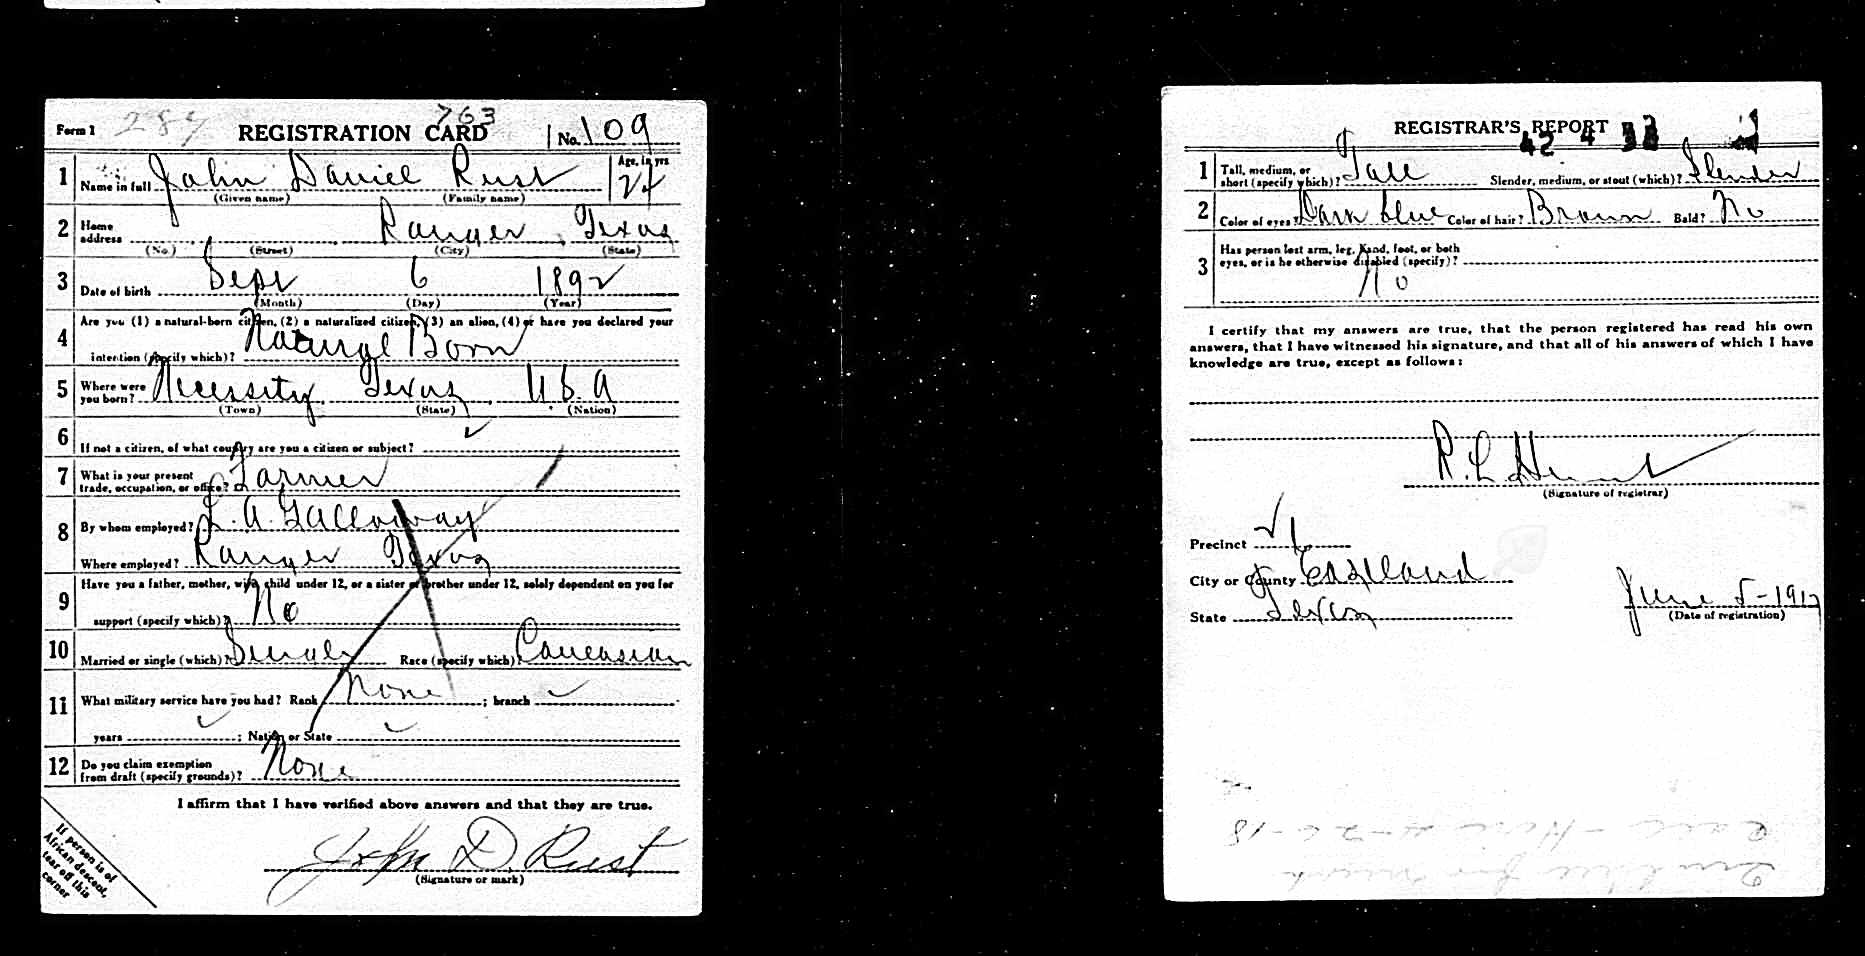 Form 1 287 REGISTRATION CARD 763 No. 109
1 Name in full John Daniel Rust Age, in yrs 24
(Given name) (Family name)
2 Home address Ranger, Texas
(No.) (Street) (City) (State)
3 Date of birth Sept 6 1892
(Month) (Day) (Year)
4 Are you (1) a natural-born citizen, (2) a naturalized citizen, (3) an alien, (4) or have you declared your
intention (specify which)? Natural Born
5 Where were you born? Necessity, Texas, U.S.A
(Town) (State) (Nation)
6 If not a citizen, of what country are you a citizen or subject? ✓
7 What is your present trade, occupation, or office? Farmer
8 By whom employed? L. A. Galloway
Where employed? Ranger Texas
9 Have you a father, mother, wife, child under 12, or a sister or brother under 12, solely dependent on you for
support (specify which)? No
10 Married or single (which)? Single Race (specify which)? Caucasian
11 What military service have you had? Rank None ; branch ✓
years ✓ ; Nation or State ✓
12 Do you claim exemption from draft (specify grounds)? None
I affirm that I have verified above answers and that they are true.
John D. Rust
(Signature or mark)
If person is of
African descent,
tear off this
corner
REGISTRAR'S REPORT
42 4
1 Tall, medium, or short (specify which)? Tall Slender, medium, or stout (which)? Slender
2 Color of eyes? Dark blue Color of hair? Brown Bald? No
3 Has person lost arm, leg, hand, foot, or both
eyes, or is he otherwise disabled (specify)?
No
I certify that my answers are true, that the person registered has read his own
answers, that I have witnessed his signature, and that all of his answers of which I have
knowledge are true, except as follows:
R. L.
(Signature of registrar)
Precinct ✓
City or County Eastland
State Texas
June 5-1917
(Date of registration)